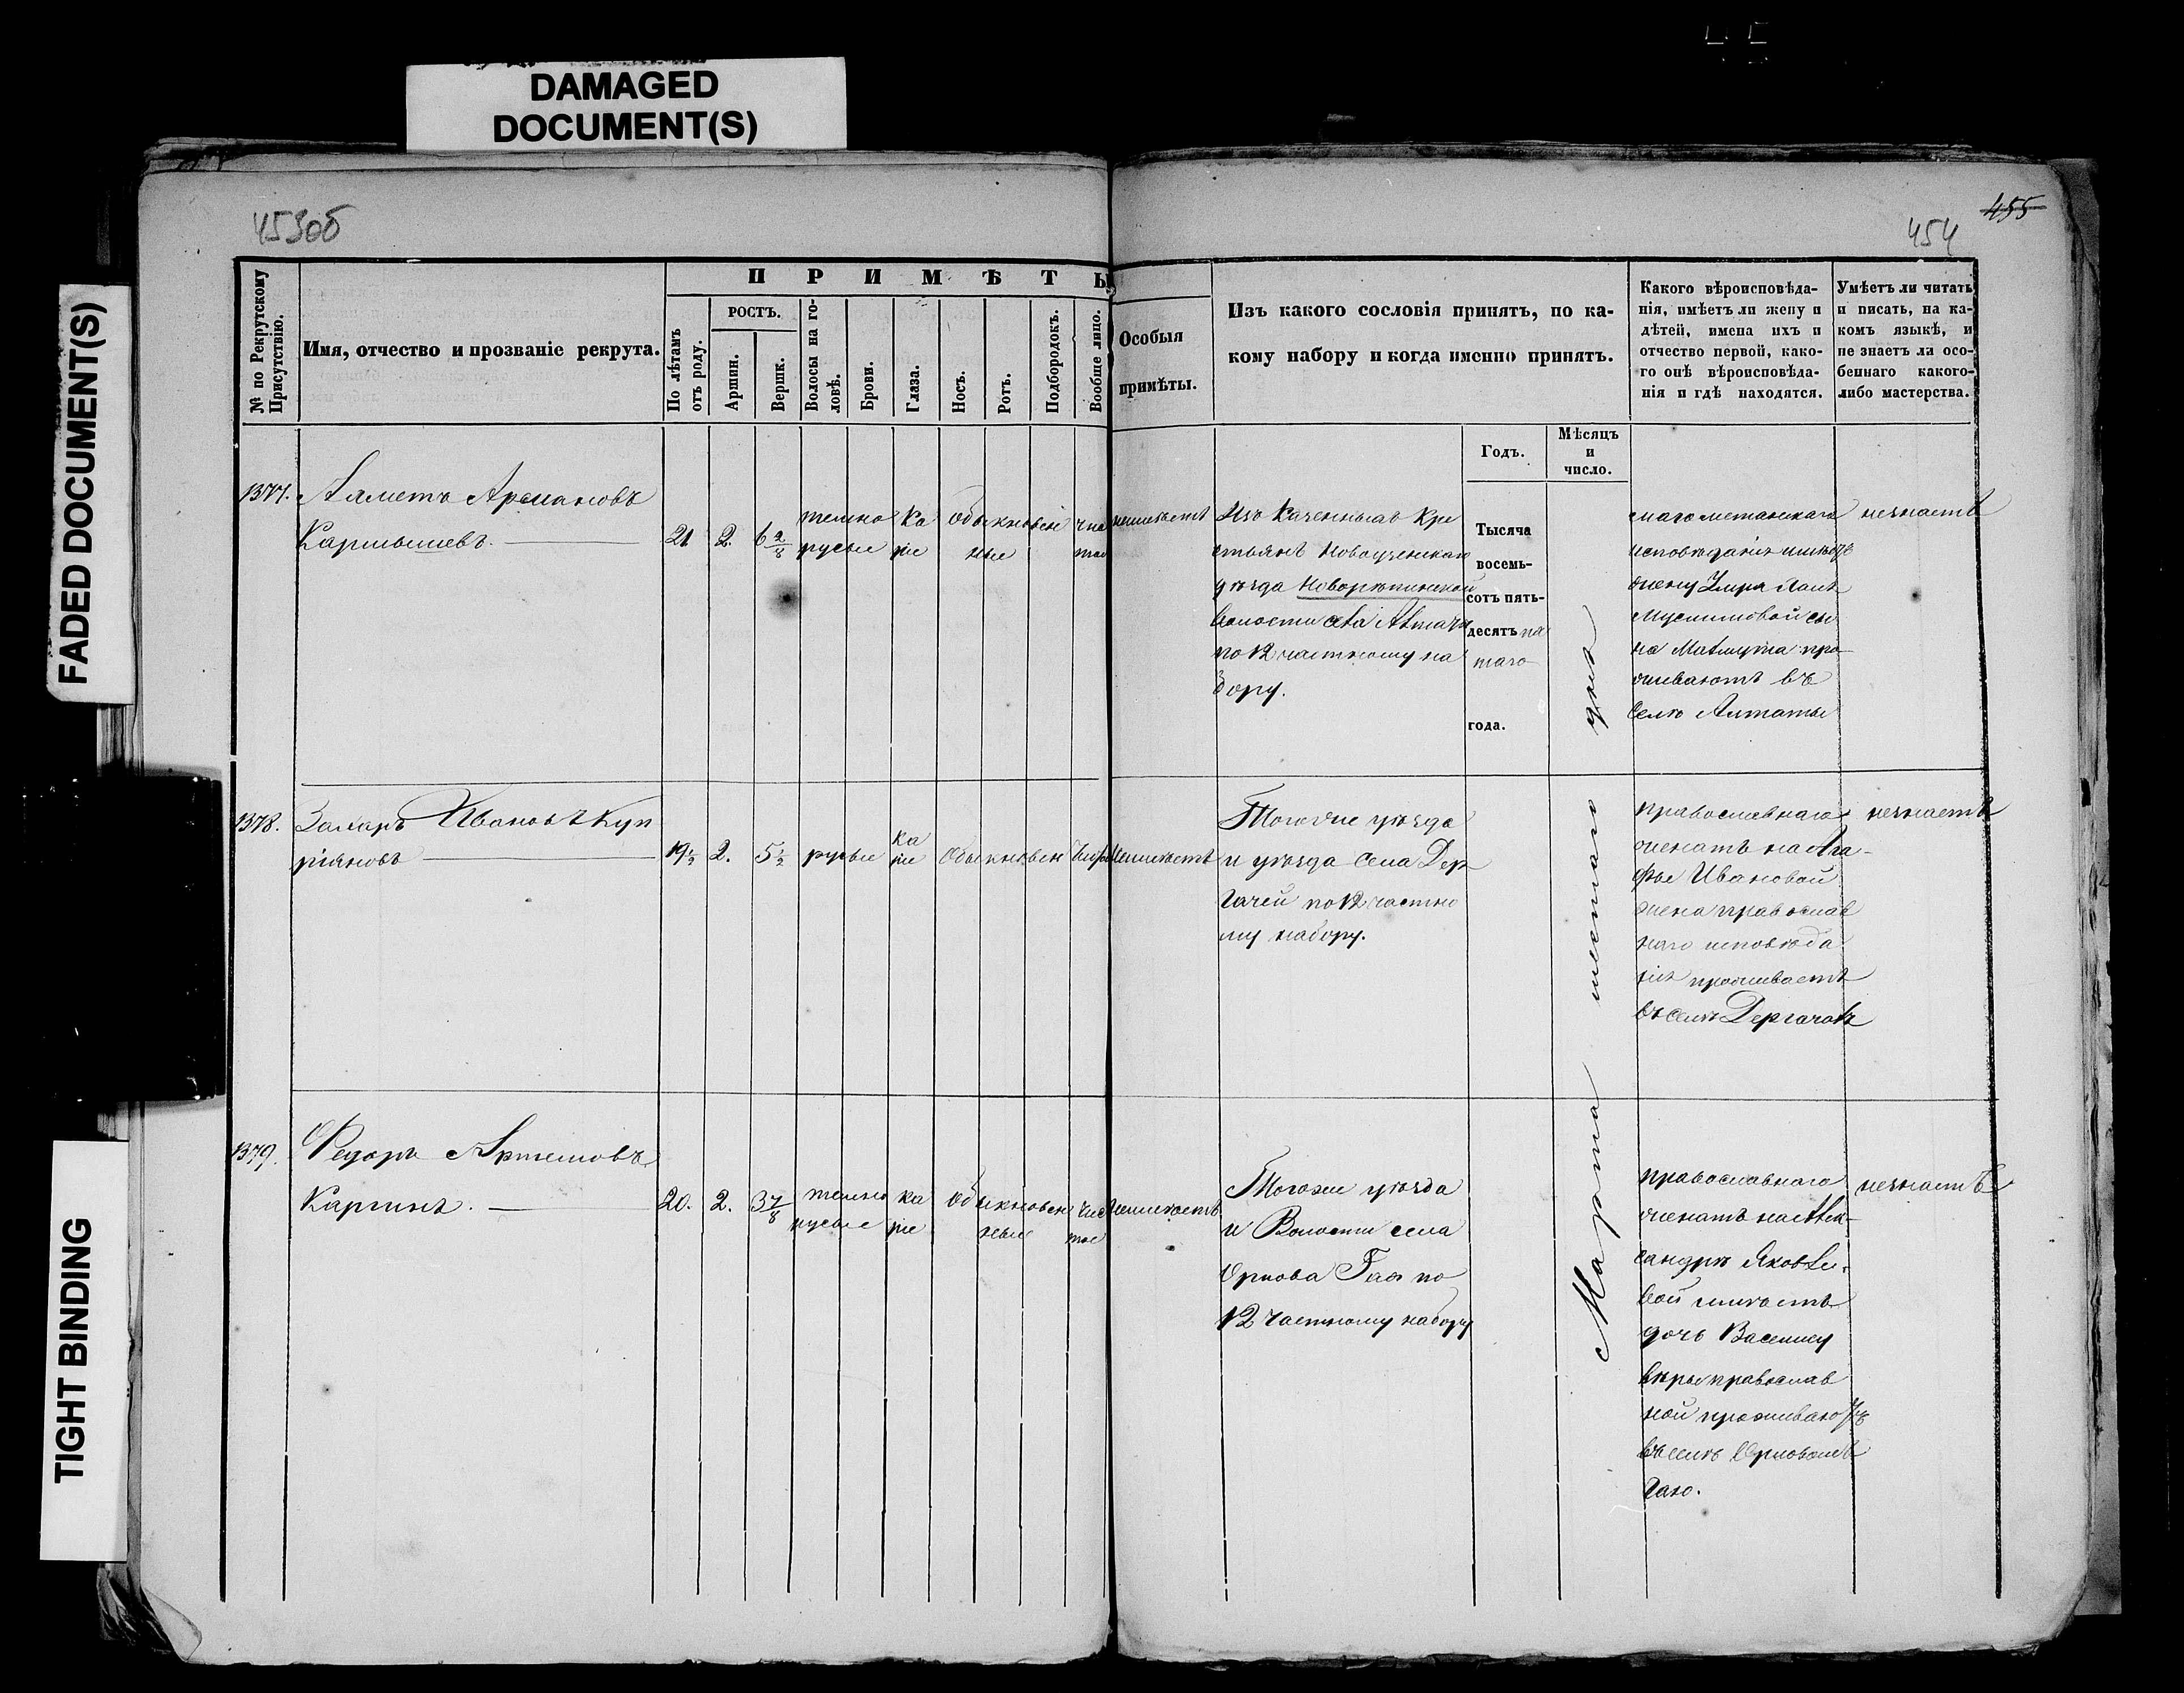 DAMAGED
DOCUMENT(S)
FADED DOCUMENT(S)
TIGHT BINDING
453об
455
454
№ по Рекрутскому
Присутствію.
Имя, отчество и прозваніе рекрута.
ПРИМѢТЫ
По лѣтамъ
отъ роду.
РОСТЪ.
Аршин.
Вершк.
Волосы на го-
ловѣ.
Брови.
Глаза.
Носъ.
Ротъ.
Подбородокъ.
Вообще лицо.
Особыя
примѣты.
Изъ какого сословія принятъ, по ка-
кому набору и когда именно принятъ.
Какого вѣроисповѣда-
нія, имѣетъ ли жену и
дѣтей, имена ихъ и
отчество первой, како-
го онѣ вѣроисповѣда-
нія и гдѣ находятся.
Умѣетъ ли читать
и писать, на ка-
комъ языкѣ, и
не знаетъ ли осо-
беннаго какого-
либо мастерства.
Годъ.
Мѣсяцъ
и
число.
1377.
Алметъ Арслановъ
Кармышевъ.
21
2.
6 2/8
темно
русые
ка
ріе
Обыкновен
ные
чис
тое
неимѣетъ
Изъ Казенныхъ Кре
стьянъ Новоузенскаго
уѣзда Новорѣпинской
волости села Алтаты
по 12 частному на
бору.
Тысяча
восемь-
сотъ пять-
десятъ пя
таго
года.
Марта шестаго дня
магометанскаго
исповѣданія имѣетъ
жену
Муслимовой сы
на Махмута про
живаютъ въ
селѣ Алтаты
незнаетъ
1378.
Захаръ Ивановъ Куп
ріяновъ
19 1/2
2.
5 1/2
русые
ка
ріе
Обыкновен
неимѣетъ
Тогоже уѣзда
и уѣзда села Дер
гачей по 12 частно
му набору.
православнаго
женатъ на Ага-
фье Ивановой
жена православ
наго исповѣда
нія проживаетъ
въ селѣ Дергачахъ
незнаетъ
1379.
Федоръ Артемовъ
Каргинъ.
20.
2.
3 7/8
темно
русые
ка
ріе
Обыкновен
ные
чис
тое
неимѣетъ
Тогоже уѣзда
и Волости села
Орлова Гая по
12 частному набору
православнаго
женатъ на Алек-
сандрѣ Яковле-
вой имѣетъ
дочь Василису
вѣры православ
ной проживаютъ
въ селѣ Орловомъ
Гаю.
незнаетъ